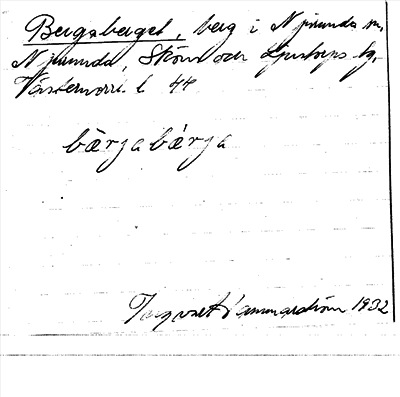 Bergaberget, berg i Njurunda sn,
Njurunda, Sköns och Ljustorps tg,
Västernorrl. l. 44
bärjabärja
Ingvast Hammarström 1932